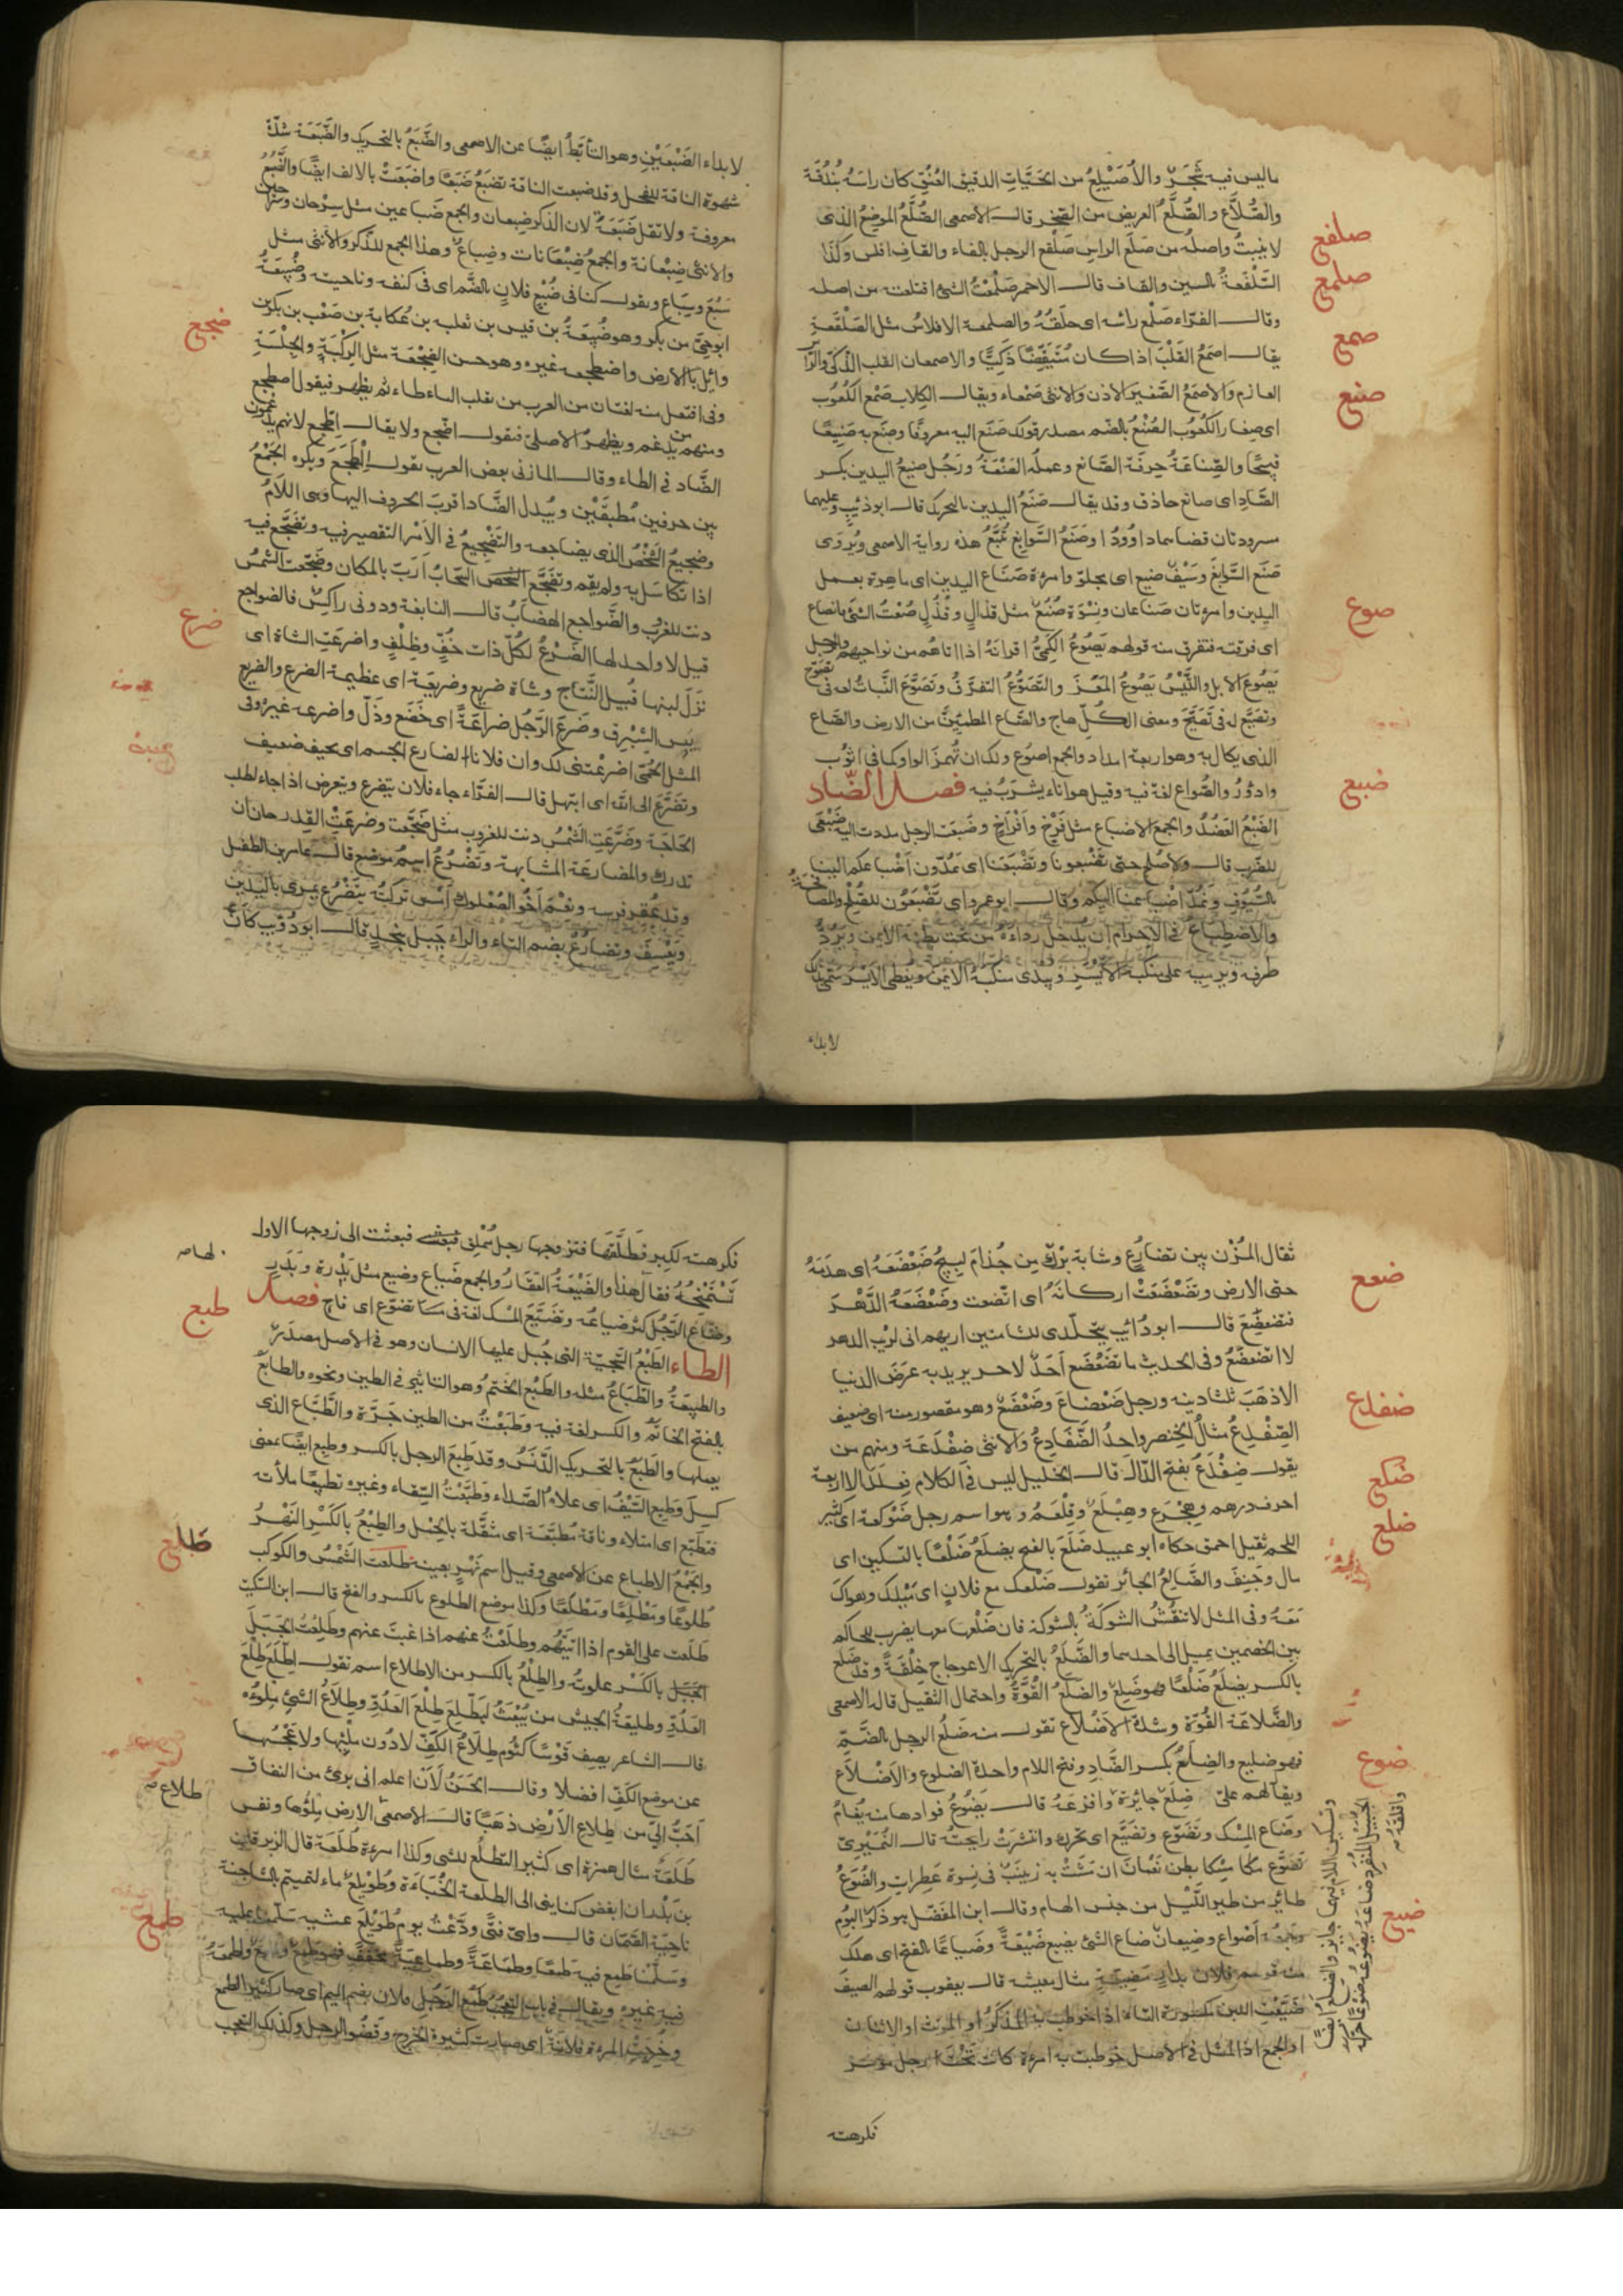 ماليس فيه شجر والأصيلع من الحيات الدقيق العنق كان راسه بندقة
والصلاع والصلع العريض من الصخر قال الاصمعى الصلع الموضع الذى
لا ينبت واصله من صلع الراس صلفع الرجل بالفاء والقاف افلس وكذا
السلفعة بالسين والقاف قال الاحمر صلمعت الشئ اقتلعته من اصله
وقال الفراء صلمع راسه اى حلقه والصلمعة الافلاس مثل الصلفعة
يقال اصمع القلب اذا كان متيقظا ذكيا والاصمعان القلب الذكى والراى
العازم والاصمع الصغير الاذن والانثى صمعاء ويقال الكلاب صمع الكعوب
اى صغار الكعوب الصنع بالضم مصدر قولك صنع اليه معروفا وصنع به صنيعا
قبيحا والصناعة حرفة الصانع وعمله الصنعة ورجل صنيع اليدين بكسر
الصاد اى صانع حاذق وقد يقال صنع اليدين بالتحريك قال ابو ذئيب وعليهما
مسرودتان قضاهما داوود او صنع السوابغ تبع هذه رواية الاصمعى ويروى
صنع السوابغ وسيف صنيع اى مجلو وامرءة صناع اليدين اى ماهرة بعمل
اليدين وامرءتان صناعان ونسوة صنع مثل قذال وقذل صعت الشئ فانصاع
اى فرقته فتفرق منه قولهم يصوع الكمى اقرانه اذا اتاهم من نواحيهم والرجل
يصوع الابل والتيس يصوع المعز والتصوع التفرق وتصوع النبات لغة فى تصوح
وتصيع لغة فى تصيح ومعنى الكل هاج والصاع المطمئن من الارض والصاع
الذى يكال به وهو اربعة امداد والجمع اصوع ولك ان تهمز الواو كما فى اثوب
وادؤر والصواع لغة فيه وقيل هو اناء يشرب فيه فصل الضاد
الضبع العضد والجمع الاضباع مثل فرخ وافراخ وضبعت الرجل مددت اليه ضبعى
للضرب قال ولا صلح حتى تضبعونا ونضبعا اى تمدون اضباعكم الينا
بالسيوف ونمد اضباعنا اليكم وقال ابو عمرو اى تضبعون للصلح والمصافحة
والاضطباع فى الاحرام ان يدخل رداءه من تحت ابطه الايمن ويرد
طرفه ويرميه على منكبه الايسر ويبدى منكبه الايمن ويغطى الايسر سمى بذلك
لابداء
صلفع
صلمع
صمع
صنع
صوع
ضبع
لابداء الضبعين وهو التأبط ايضا عن الاصمعى والضبع بالتحريك والضبعة شدة
شهوة الناقة للفحل وقد ضبعت الناقة تضبع ضبعا واضبعت بالالف ايضا والضبع
معروفة ولا تقل ضبعة لان الذكر ضبعان والجمع ضباعين مثل سرحان وسراحين
والانثى ضبعانة والجمع ضبعانات وضباع وهذا الجمع للذكر والانثى مثل
سبع وسباع ويقول كنا فى ضبع فلان بالضم اى فى كنفه وناحيته وضبيعة
ابو حى من بكر وهو ضبيعة بن قيس بن ثعلبه بن عكابة بن صعب بن بكر بن
وائل بالارض واضطجعه غيره وهو حسن الضجعة مثل الركبة والجلسة
وفى افتعل منه لغتان من العرب من نقلب التاء طاء ثم يظهر فيقول اضطجع
ومنهم من يدغم ويظهر الاصلى فنقول اضجع ولا يقال اطجع لانهم يدغمون
الضاد فى الطاء وقال المازنى بعض العرب نقول الطجع ويكره الجمع
بين حرفين مطبقين ويبدل الضاد اقرب الحروف اليها وهى اللام
وضجيع الشخص الذى يضاجعه والتضجيع فى الامر التقصير فيه وتضجع فيه
اذا تكاسل به ولم يقم وتضجع السحاب ارب بالمكان وضجعت الشمس
دنت للغرب والضواجع الهضاب قال النابغة ودونى راكس فالضواجع
قيل لا واحد لها الضرع لكل ذات خف وظلف واضرعت الشاة اى
نزل لبنها قبيل النتاج وشاة ضريع وضريعة اى عظيمة الضرع والضريع
يبس الشبرق وضرع الرجل ضراعة اى خضع وذل واضرعه غيره وفى
المثل الحمى اضرعتنى لك وان فلانا لضارع الجسم اى نحيف ضعيف
وتضرع الى الله اى ابتهل قال الفراء جاء فلان يتضرع ويتعرض اذا جاء لطلب
الحاجة وضرعت الشمس دنت للغروب مثل ضجعت وضرعت القدر حان ان
تدرك والمضارعة المشابهة وتضرع اسم موضع قال عامر بن الطفيل
وقد عقر فرسه ونعم اخو الصعلوك امس تركته بتضرع يمرى باليدين
ويعسف وتضارع بضم التاء والراء جبل بنجد قال ابو ذؤيب كان
ضجع
ضرع
ثقال المزن بين تضارع وشابة برك من جذام لبيج ضعضعه اى هدمه
حتى الارض وتضعضعت اركانه اى اتضعت وضعضعه الدهر
فتضعضع قال ابو ذؤيب وتجلدى للشامتين اريهم انى لريب الدهر
لا اتضعضع وفى الحديث ما تضعضع احد لاخر يريد به عرض الدنيا
الا ذهب ثلثا دينه ورجل ضعضاع وضعضع وهو مقصور منه اى ضعيف
الضفدع مثال الخنصر واحد الضفادع والانثى ضفدعة ومنهم من
يقول ضفدع بفتح الدال قال الخليل ليس فى الكلام فعلل الا اربعة
احرف درهم وهجرع وهبلع وقلعم وهو اسم رجل ضوكعة اى كثير
اللحم ثقيل احمق حكاه ابو عبيد ضلع بالفتح يضلع ضلعا بالتسكين اى
مال وجنف والضالع الجائر نقول ضلعك مع فلان اى ميلك وهواك
معه وفى المثل لا تنقش الشوكة بالشوكة فان ضلعها معها يضرب للحاكم
بين الخصمين يميل الى احدهما والضلع بالتحريك الاعوجاج خلقة وقد ضلع
بالكسر يضلع ضلعا فهو ضلع والضلع القوة واحتمال الثقيل قاله الاصمعى
والضلاعة القوة وشدة الاضلاع تقول منه ضلع الرجل بالضم
فهو ضليع والضلع بكسر الضاد وفتح اللام واحدة الضلوع والاضلاع
ويقال هم على ضلع جائرة وافزعه قال يضوع فؤادها منه بغام
وضاع المسك وتضوع وتضيع اى تحرك وانتشرت رايحته قال النميرى
تضوع مسكا بطن نعمان ان مشت به زينب فى نسوة عطرات والضوع
طائر من طير الليل من جنس الهام وقال ابن المفضل هو ذكر البوم
وجمعه اضواع وضيعان ضاع الشئ يضيع ضيعة وضياعا بالفتح اى هلك
منه قولهم فلان بدار مضيعة مثال معيشة قال يعقوب قولهم الصيف
ضيعت اللبن مكسورة التاء اذا خوطب به المذكر او المونث او الاثنان
او الجمع اذ المثل فى الاصل خوطبت به امرءة كانت تحت رجل موسر
فكرهته
ضعع
ضفدع
ضكع
ضلع
ضوع
ضيع
فكرهته لكبر فطلقها فتزوجها رجل مملق فبعثت الى زوجها الاول
تستمنحه فقال هذا والضيعة العقار والجمع ضياع وضيع مثل بدرة وبدر
لها صه
واضاع الرجل كثر ضياعه وتضيع المسك لغة فى تضوع اى فاح فصل
الطاء الطبع السجية التى جبل عليها الانسان وهو فى الاصل مصدر
والطبيعة والطباع مثله والطبع الختم وهو التاثير فى الطين ونحوه والطابع
بالفتح الخاتم والكسر لغة فيه وطبعت من الطين جرة والطباع الذى
يعملها والطبع بالتحريك الدنس وقد طبع الرجل بالكسر وطبع ايضا بمعنى
كسل وطبع السيف اى علاه الصداء وطبعت السقاء وغيره تطبيعا ملأته
فتطبع اى امتلاء وناقة مطبعة اى مثقلة بالحمل والطبع بالكسر النهر
والجمع الاطباع عن الاصمعى وقيل اسم نهر بعينه طلعت الشمس والكوكب
طلوعا ومطلعا ومطلعا وكذا موضع الطلوع بالكسر والفتح قال ابن السكيت
طلعت على القوم اذا اتيتهم وطلعت عنهم اذا غبت عنهم وطلعت الجبل
بالكسر علوته والطلع بالكسر من الاطلاع اسم تقول اطلع طلع
العدو وطليعة الجيش من يبعث ليطلع طلع العدو وطلاع الشئ ملؤه
قال الشاعر يصف قوسا كتوم طلاع الكف لا دون ملئها ولا عجسها
عن موضع الكف افضلا وقال الحسن لان اعلم انى برئ من النفاق
احب الى من طلاع الارض ذهبا قال الاصمعى طلاع الارض ملؤها ونفس
طلعة مثال همزة اى كثير التطلع للشئ وكذا امرءة طلعة قال الزبرقان
بن بدر ان ابغض كناينى الى الطلعة الخباءة وطويلع ماء لتميم بالشاجنة
ناحية الصمان قال واى فتى ودعت يوم طويلع عشيه سلمنا عليه
وسلمنا طمع فيه طمعا وطماعة وطماعية مخفف فهو طمع وطمع واطمعه
فيه غيره ويقال فى باب التعجب طمع الرجل فلان بضم الميم اى صار كثير الطمع
وخرجت المرءة فلانة اى صارت كثيرة الخروج وقضو الرجل وكذلك التعجب
طبع
طلع
طلاع صه
طمع